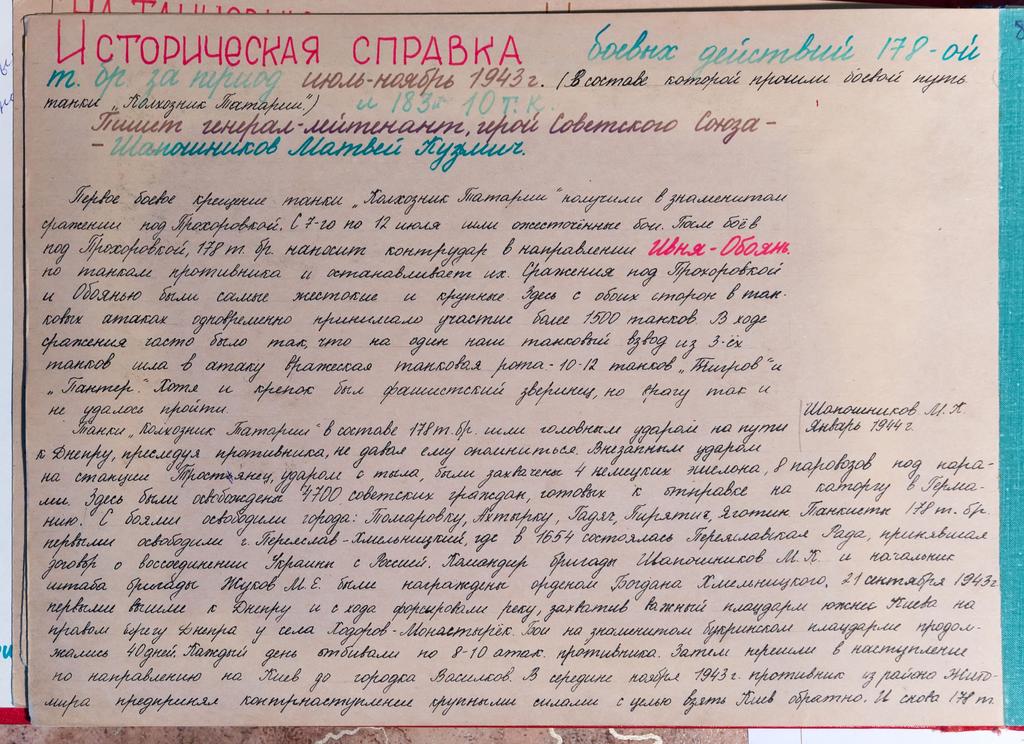 Историческая справка боевых действий 178-ой
т. бр. за период июль-ноябрь 1943г. (В составе которой прошли боевой путь
танки „Колхозник Татарии") и 183й 10 т. к.
Пишет генерал-лейтенант, герой Советского Союза -
- Шапошников Матвей Кузмич.
Первое боевое крещение танки „Колхозник Татарии" получили в знаменитом
сражении под Прохоровкой. С 7-го по 12 июля шли ожесточённые бои. После боёв
под Прохоровкой, 178 т. бр. наносит контрудар в направлении Ивня-Обоянь
по танкам противника и останавливает их. Сражения под Прохоровкой
и Обоянью были самые жестокие и крупные. Здесь с обоих сторон в тан-
ковых атаках одновременно принимало участие более 1500 танков. В ходе
сражения часто было так, что на один наш танковый взвод из 3-ёх
танков шла в атаку вражеская танковая рота - 10-12 танков „Тигров" и
„Пантер". Хотя и крепок был фашистский зверинец, но врагу так и
не удалось пройти.
Шапошников М. К.
Январь 1944г.
Танки „Колхозник Татарии" в составе 178 т. бр. шли головным ударом на пути
к Днепру, преследуя противника, не давая ему опомниться. Внезапным ударом
на станции Тростянец, ударом с тыла, были захвачены 4 немецких эшелона, 8 паровозов под пара-
ми. Здесь были освобождены 4700 советских граждан, готовых к отправке на каторгу в Герма-
нию. С боями освободили города: Томаровку, Ахтырку, Гадяч, Пирятин, Яготин. Танкисты 178 т. бр.
первыми освободили г. Переяслав-Хмельницкий, где в 1654 состоялась Переяславская Рада, принявшая
договор о воссоединении Украины с Россией. Командир бригады Шапошников М. К. и начальник
штаба бригады Жуков М. Е. были награждены орденом Богдана Хмельницкого. 21 сентября 1943г
первыми вышли к Днепру и с хода форсировали реку, захватив важный плацдарм южнее Киева на
правом берегу Днепра у села Ходоров-Монастырёк. Бои на знаменитом букринском плацдарме продол-
жались 40 дней. Каждый день отбивали по 8-10 атак противника. Затем перешли в наступление
по направлению на Киев до городка Васильков. В середине ноября 1943 г. противник из района Жито-
мира предпринял контрнаступление крупными силами с целью взять Киев обратно. И снова 178 т.